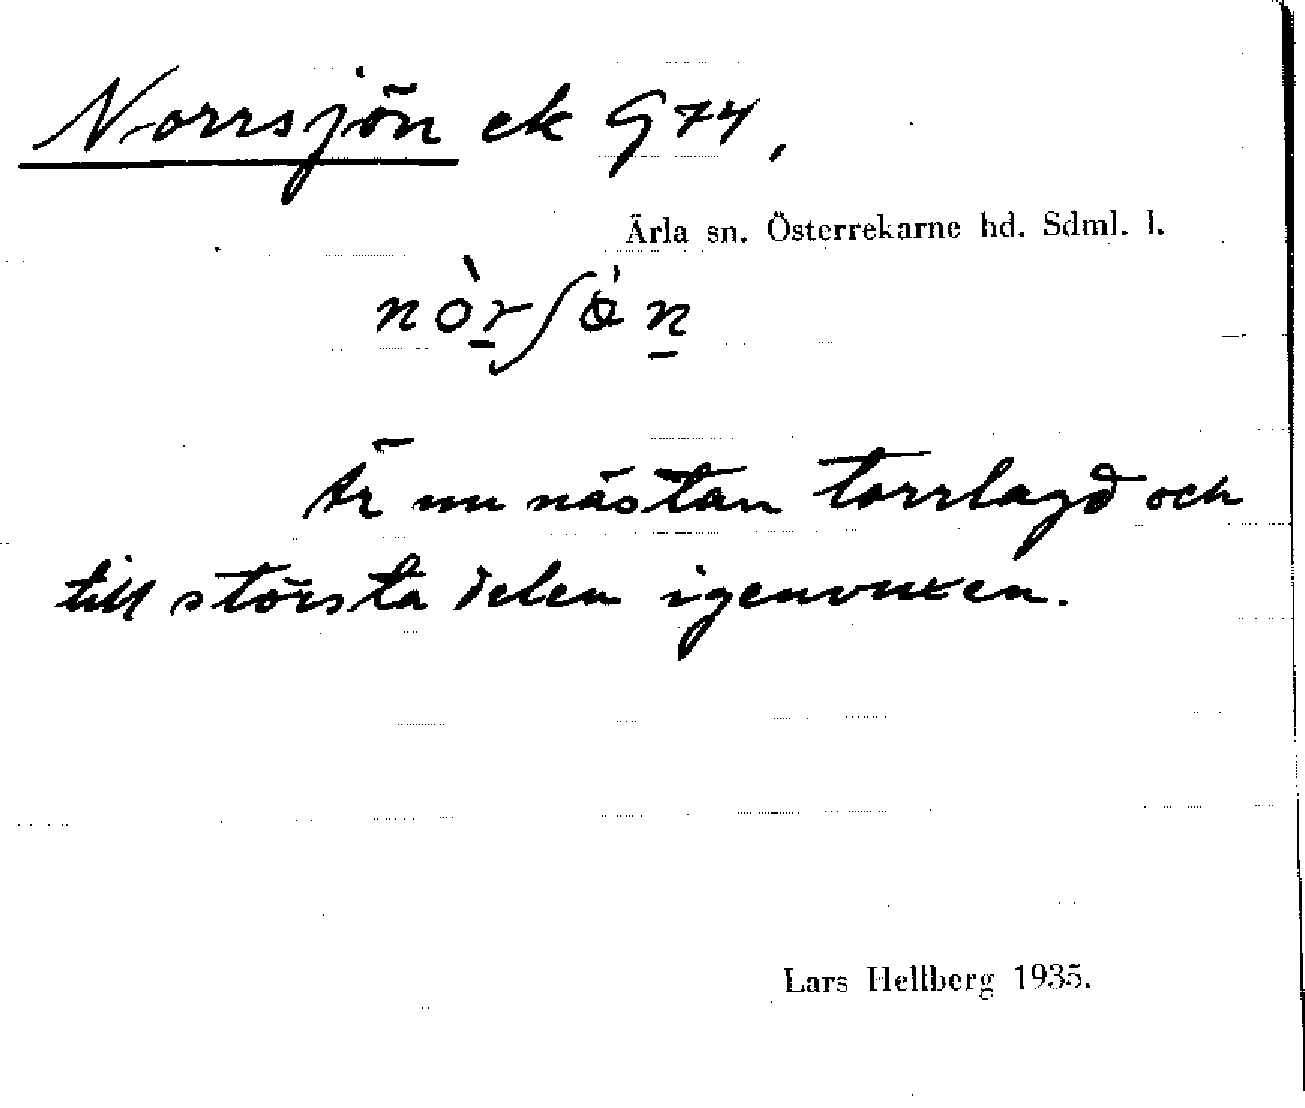 Norrsjön ek 974,
Ärla sn. Österrekarne hd. Sdml. l.
nòr̲ʃȯ́n̲
Är nu nästan torrlagd och
till största delen igenvuxen.
Lars Hellberg 1935.